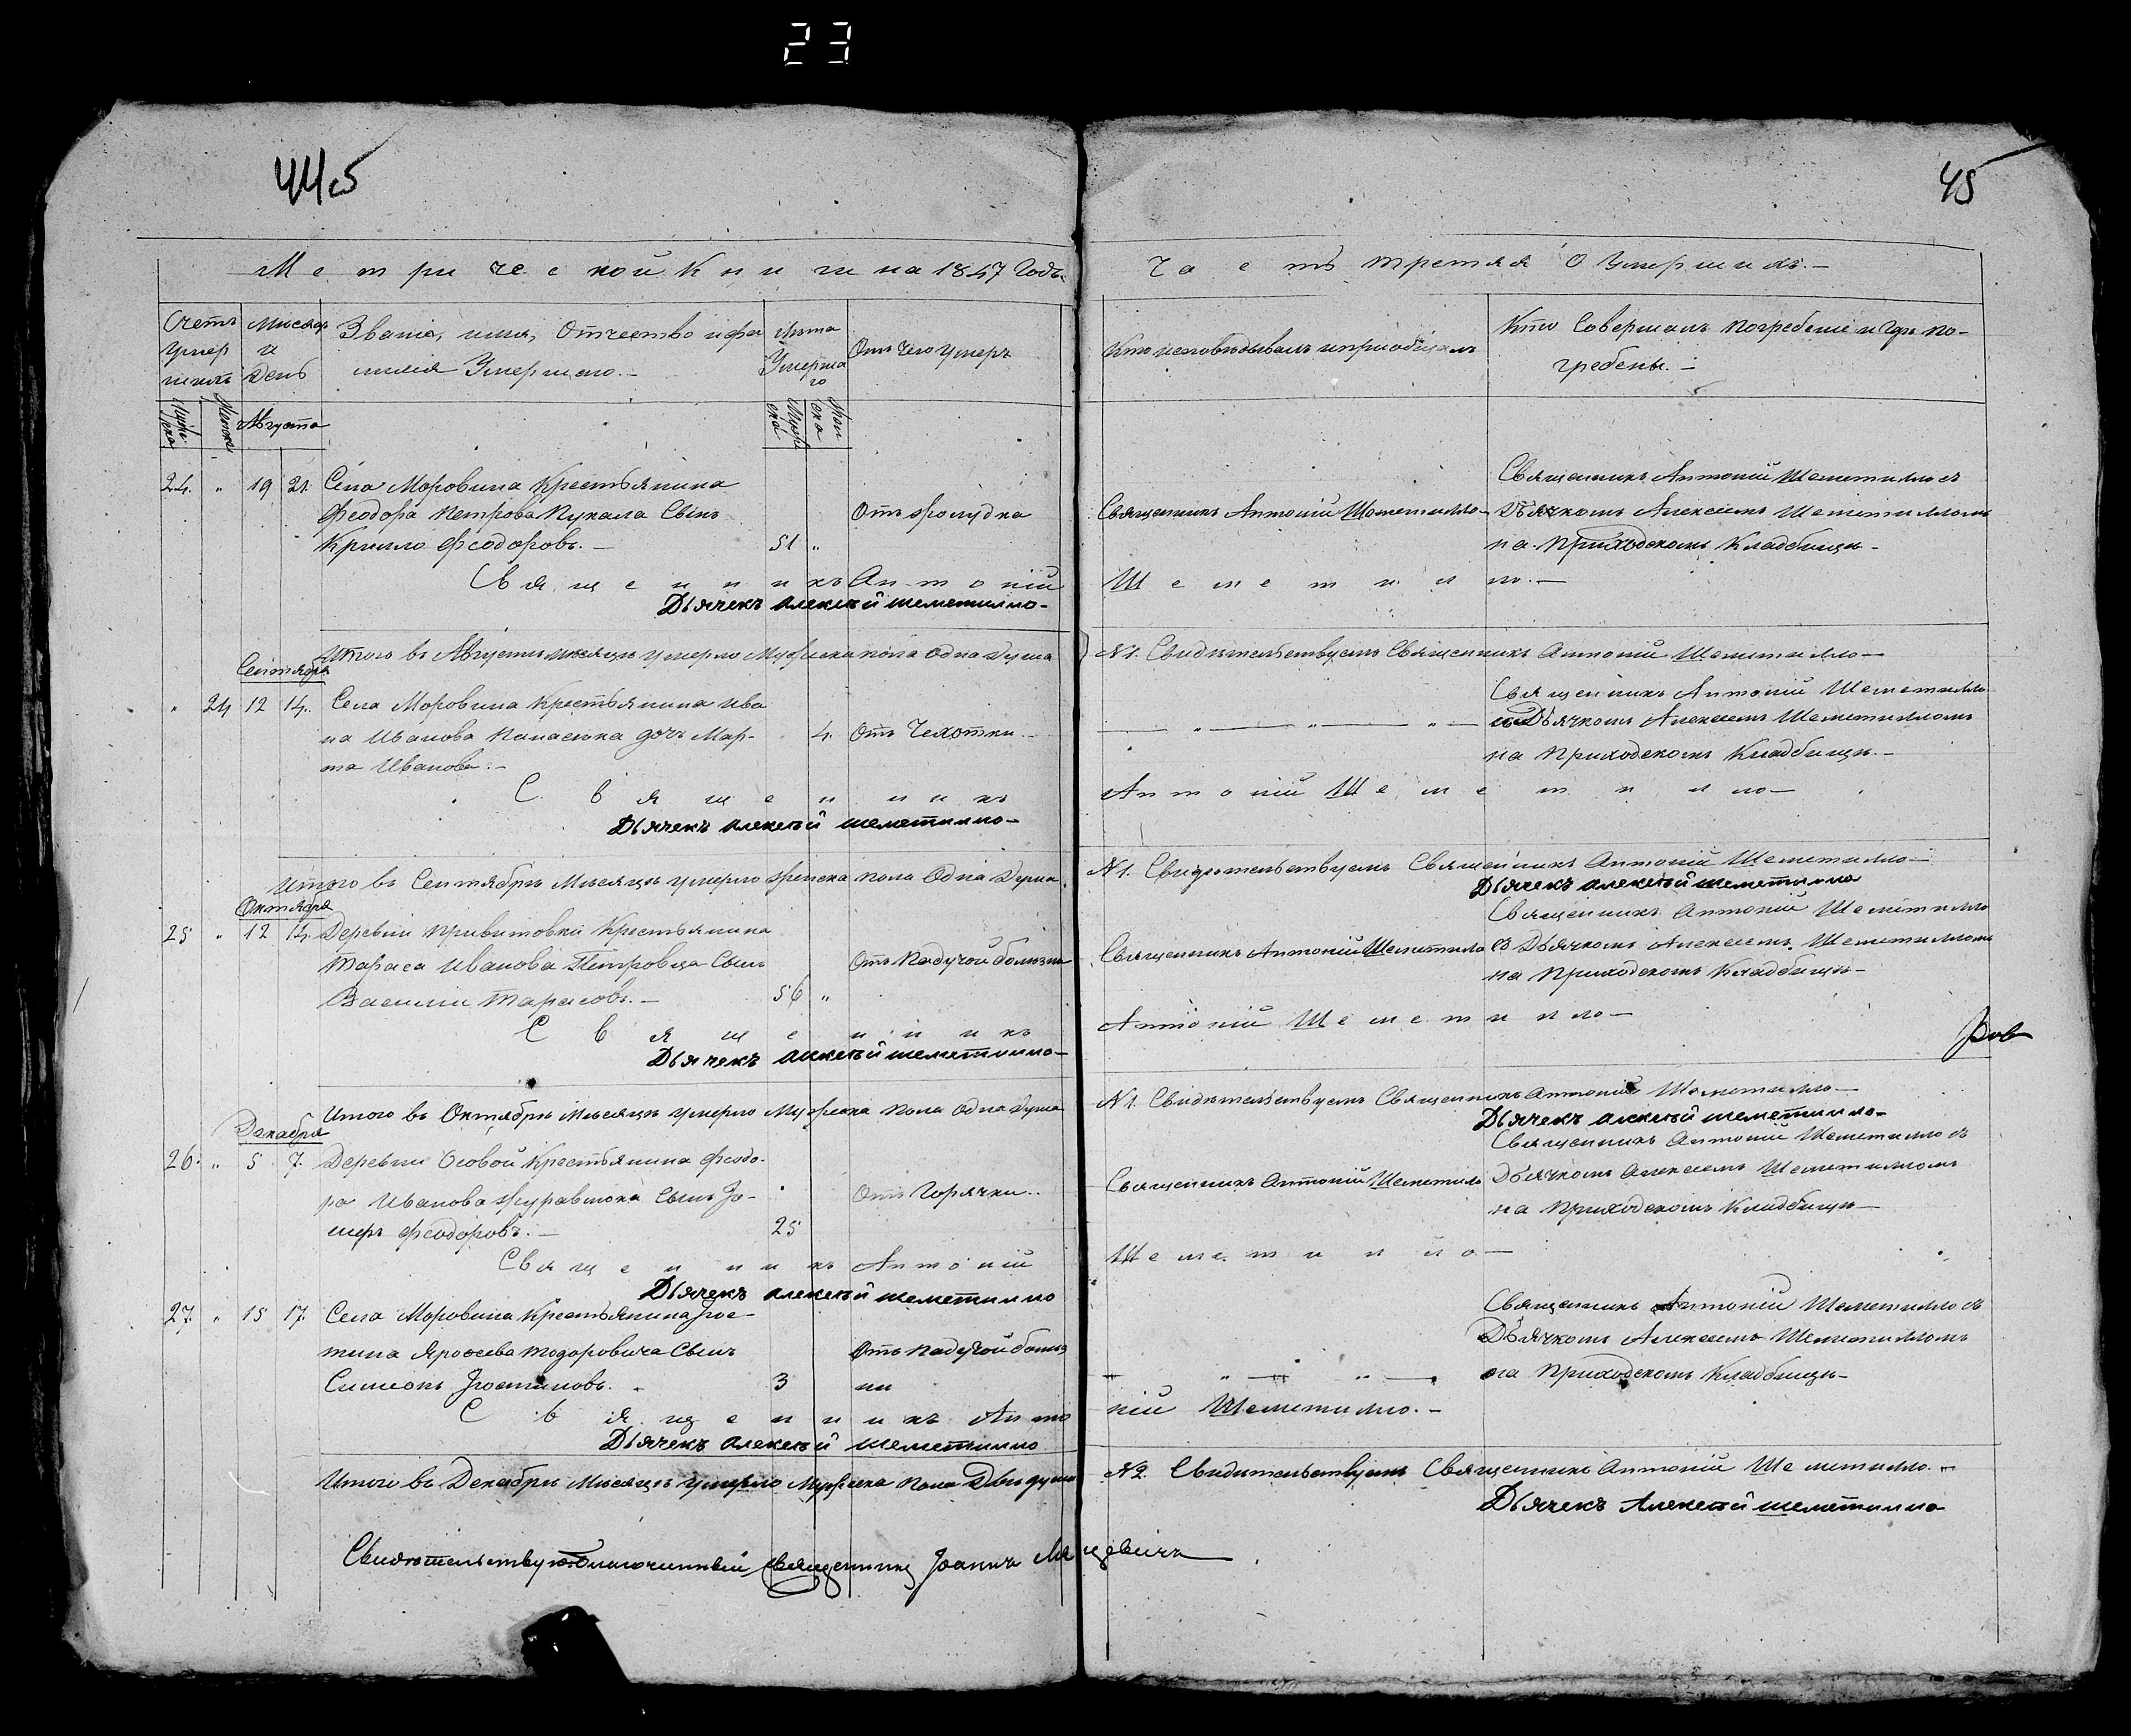 23
445
45
Метрической Книги на 1847 Годъ
Часть третяя О Умершихъ.—
Счетъ умершихъ
Мѣсяцъ и День
Званіе, имя, Отчество и фамилія Умершего.—
Лѣта Умершаго
Отъ Чего Умеръ
Кто исповѣдывалъ и приобщалъ
Кто Совершалъ погребеніе и Где погребены.—
Мужеска
Женска
Августа
Мужеска
Женска
24. " 19 21. Села Моровина Крестьянина
Феодора Петрова Пукала Сынъ
Кирило Феодоровъ.— 51 "
Отъ
Священникъ Антоній Шеметилло—
Священникъ Антоній Шеметилло съ
Дьячкомъ Алексіемъ Шеметилломъ
на Приходскомъ Кладбищѣ—
Священникъ Антоній Шеметилло.—
Дьячекъ Алексѣй Шеметилло—
Итого въ Августѣ Мѣсяцѣ умерло Мужеска пола Одна Душа
№ 1. Свидѣтельствуемъ Священникъ Антоній Шеметилло—
Сентября
" 24 12 14. Села Моровина Крестьянина Ива
на Иванова Панасюка дочъ Мар-
та Иванова.— 4. Отъ Чехотки—
Священникъ Антоній Шеметилло
съ Дьячкомъ Алексіемъ Шеметилломъ
на Приходскомъ Кладбищѣ.—
Священникъ Антоній Шеметилло—
Дьячекъ Алексѣй Шеметилло—
Итого въ Сентябрѣ Мѣсяцѣ умерло Женска пола Одна Душа.
№ 1. Свидѣтельствуемъ Священникъ Антоній Шеметилло—
Дьячекъ Алексѣй Шеметилло
Октября
25 " 12 14. Деревни Привитовки Крестьянина
Тараса Иванова Петровца Сынъ
Василій Тарасовъ.— 56 "
Отъ Падучой болѣзни
Священникъ Антоній Шеметилло
Священникъ Антоній Шеметилло
съ Дьячкомъ Алексіемъ Шеметилломъ
на Приходскомъ Кладбищѣ—
Священникъ Антоній Шеметилло—
Дьячекъ Алексѣй Шеметилло—
Итого въ Октябрѣ Мѣсяцѣ умерло Мужеска пола Одна Душа
№ 1. Свидѣтельствуемъ Священникъ Антоній Шеметилло—
Дьячекъ Алексѣй Шеметилло—
Декабря
26. " 5 7. Деревни Осовой Крестьянина Феодо-
ра Иванова Журавлюка Сынъ
Феодоровъ.— 25
Отъ Горячки..
Священникъ Антоній Шеметилло
Священникъ Антоній Шеметилло съ
Дьячкомъ Алексіемъ Шеметилломъ
на Приходскомъ Кладбищѣ—
Священникъ Антоній Шеметилло—
Дьячекъ Алексѣй Шеметилло
27. " 15 17. Села Моровина Крестьянина Іюс-
тина Ярофеева Тодоровича Сынъ
Симеонъ Іюстиновъ. 3
Отъ Падучой болѣз
ни
Священникъ Антоній Шеметилло съ
Дьячкомъ Алексіемъ Шеметилломъ
на Приходскомъ Кладбищѣ—
Священникъ Антоній Шеметилло.—
Дьячекъ Алексѣй Шеметилло
Итого въ Декабрѣ Мѣсяцѣ умерло Мужеска пола Двѣ души
№ 2. Свидѣтельствуемъ Священникъ Антоній Шеметилло.—
Дьячекъ Алексѣй Шеметилло
Свидѣтельствую Благочинный Священникъ Іоаннъ